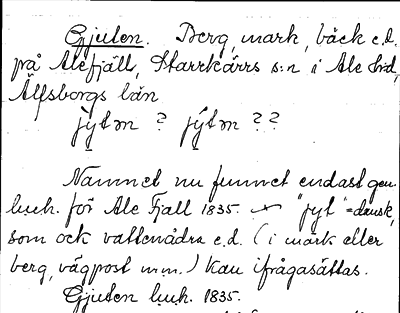 Gjuten. Berg, mark, bäck e.d.
på Alefjäll, Starrkärrs s:n i Ale hd,
Älfsborgs län
jytən ? jýtən ??
Namnet nu funnet endast gen.
luh. för Ale Fjäll 1835. "jyt" = dansk,
som ock vattenådra e.d. (i mark eller
berg, vägpost m.m.) kan ifrågasättas.
Gjuten luh. 1835.